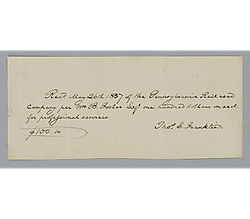 Recd May 26th 1857 of the Pennsylvania Rail road
Company per Wm B. Foster Esqr one hundred dollars on acct
for professional services
$100.00
Thos. E. Franklin